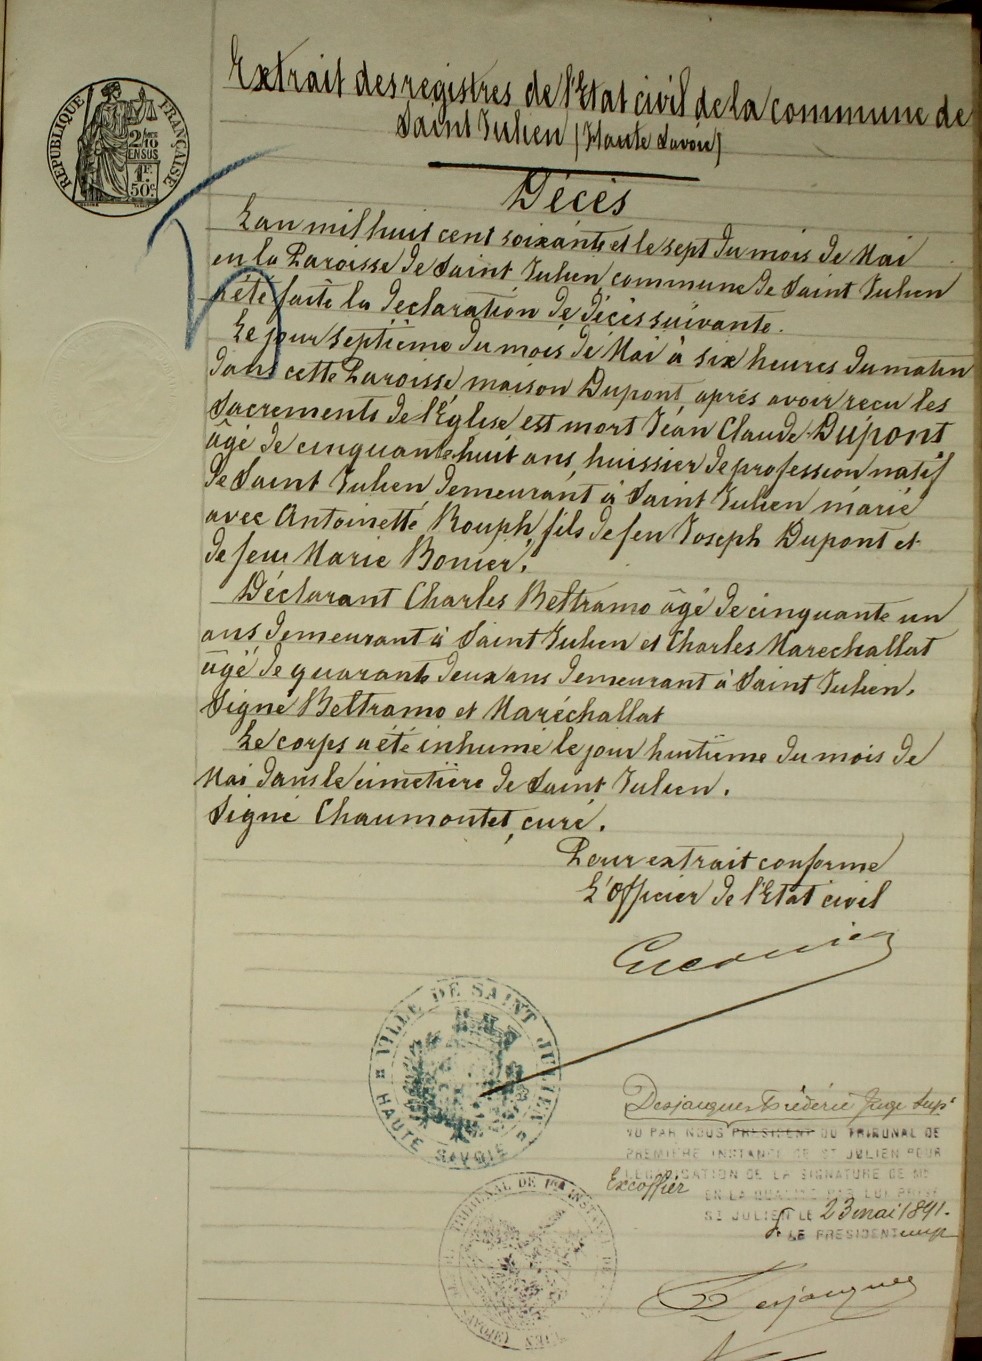 Extrait des registres de l'Etat civil de la commune de
Saint Julien (Haute Savoie)
RÉPUBLIQUE FRANÇAISE
2/10
EN SUS
1F.
50c.
Décès
L'an mil huit cent soixante et le sept du mois de Mai
en la Paroisse de Saint Julien commune de Saint Julien
a été faite la déclaration de décès suivante.
Le jour septième du mois de Mai à six heures du matin
dans cette Paroisse maison Dupont après avoir reçu les
Sacrements de l'Église est mort Jean Claude Dupont
âgé de cinquante huit ans, huissier de profession natif
de Saint Julien demeurant à Saint Julien marié
avec Antoinette Rouph, fils de feu Joseph Dupont et
de feue Marie Bonier.
Déclarant Charles Beltramo âgé de cinquante un
ans demeurant à Saint Julien et Charles Maréchallat
âgé de quarante deux ans demeurant à Saint Julien.
Signé Beltramo et Maréchallat
Le corps a été inhumé le jour huitième du mois de
Mai dans le cimetière de Saint Julien.
Signé Chaumontet, curé.
Pour extrait conforme
L'Officier de l'Etat civil
VILLE DE SAINT JULIEN
HAUTE SAVOIE
Desjacques Frédéric Juge Supt
VU PAR NOUS PRESIDENT DU TRIBUNAL DE
PREMIÈRE INSTANCE DE ST JULIEN POUR
LEGALISATION DE LA SIGNATURE DE Mr
Excoffier
EN LA QUALITÉ PAR LUI PRISE
ST JULIEN LE 23 mai 1891.
LE PRESIDENT
TRIBUNAL DE 1re INSTANCE DE
Desjacques